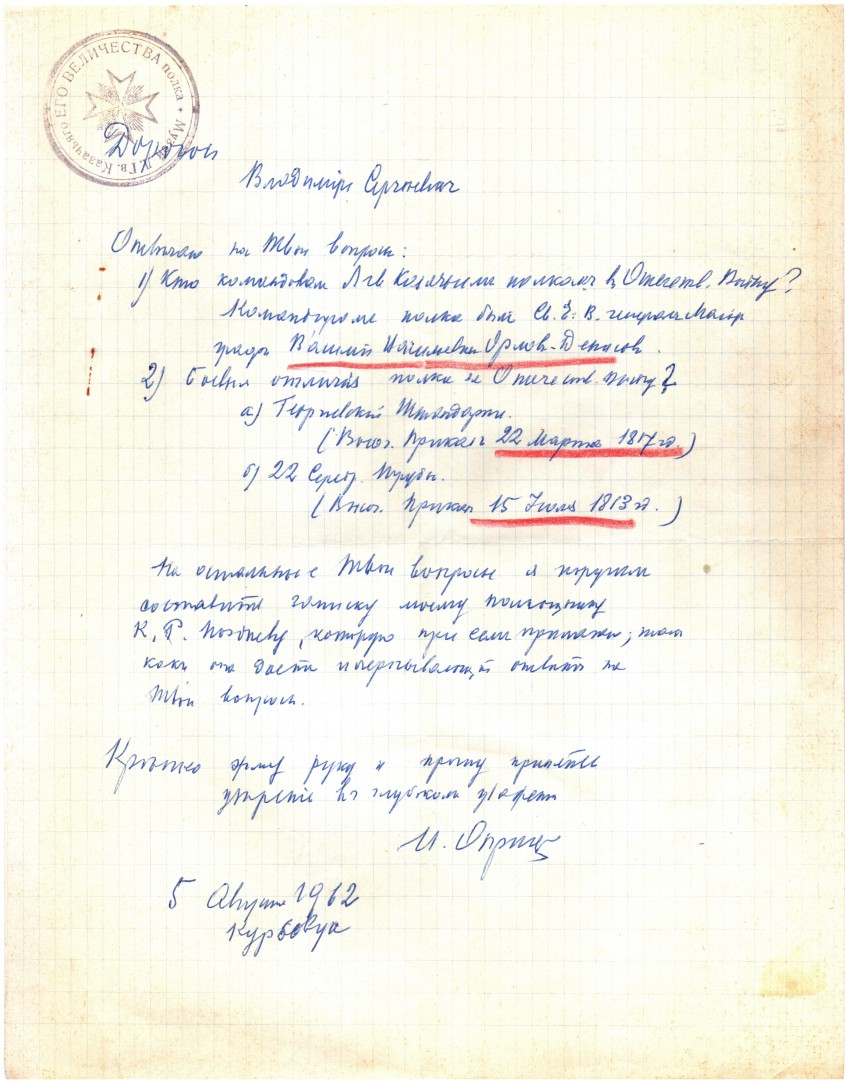 Музей Л. Гв. Казачьяго ЕГО ВЕЛИЧЕСТВА полка
Дорогой
Владимiръ Сергѣевич
Отвѣчаю на Твои вопросы:
1) Кто командовал Л гв Казачьим полкомъ въ Отечеств. Войну?
Командиром полка был Св. Е. В. генерал Маiор
графъ Васил Орлов-Денисов.
2) Боевыя отличiя полка за Отечеств. войну?
а) Георгиевский Штандартъ.
(Высоч. Приказ 22 Марта 18 г.)
б) 22 Сереб. Трубы.
(Высоч. Приказ 15 Iюля 1813 г.)
На остальные Твои вопросы я поручил
составить записку моему помощнику
К. Р. Поздневу, которую при сем прилагаю, так
какъ она даст исчерпывающiй отвѣтъ на
Твои вопросы.
Крѣпко жму руку и прошу принять
увѣренiе въ глубоком уважен
И. Оприц
5 Август 1962
Курбевуа